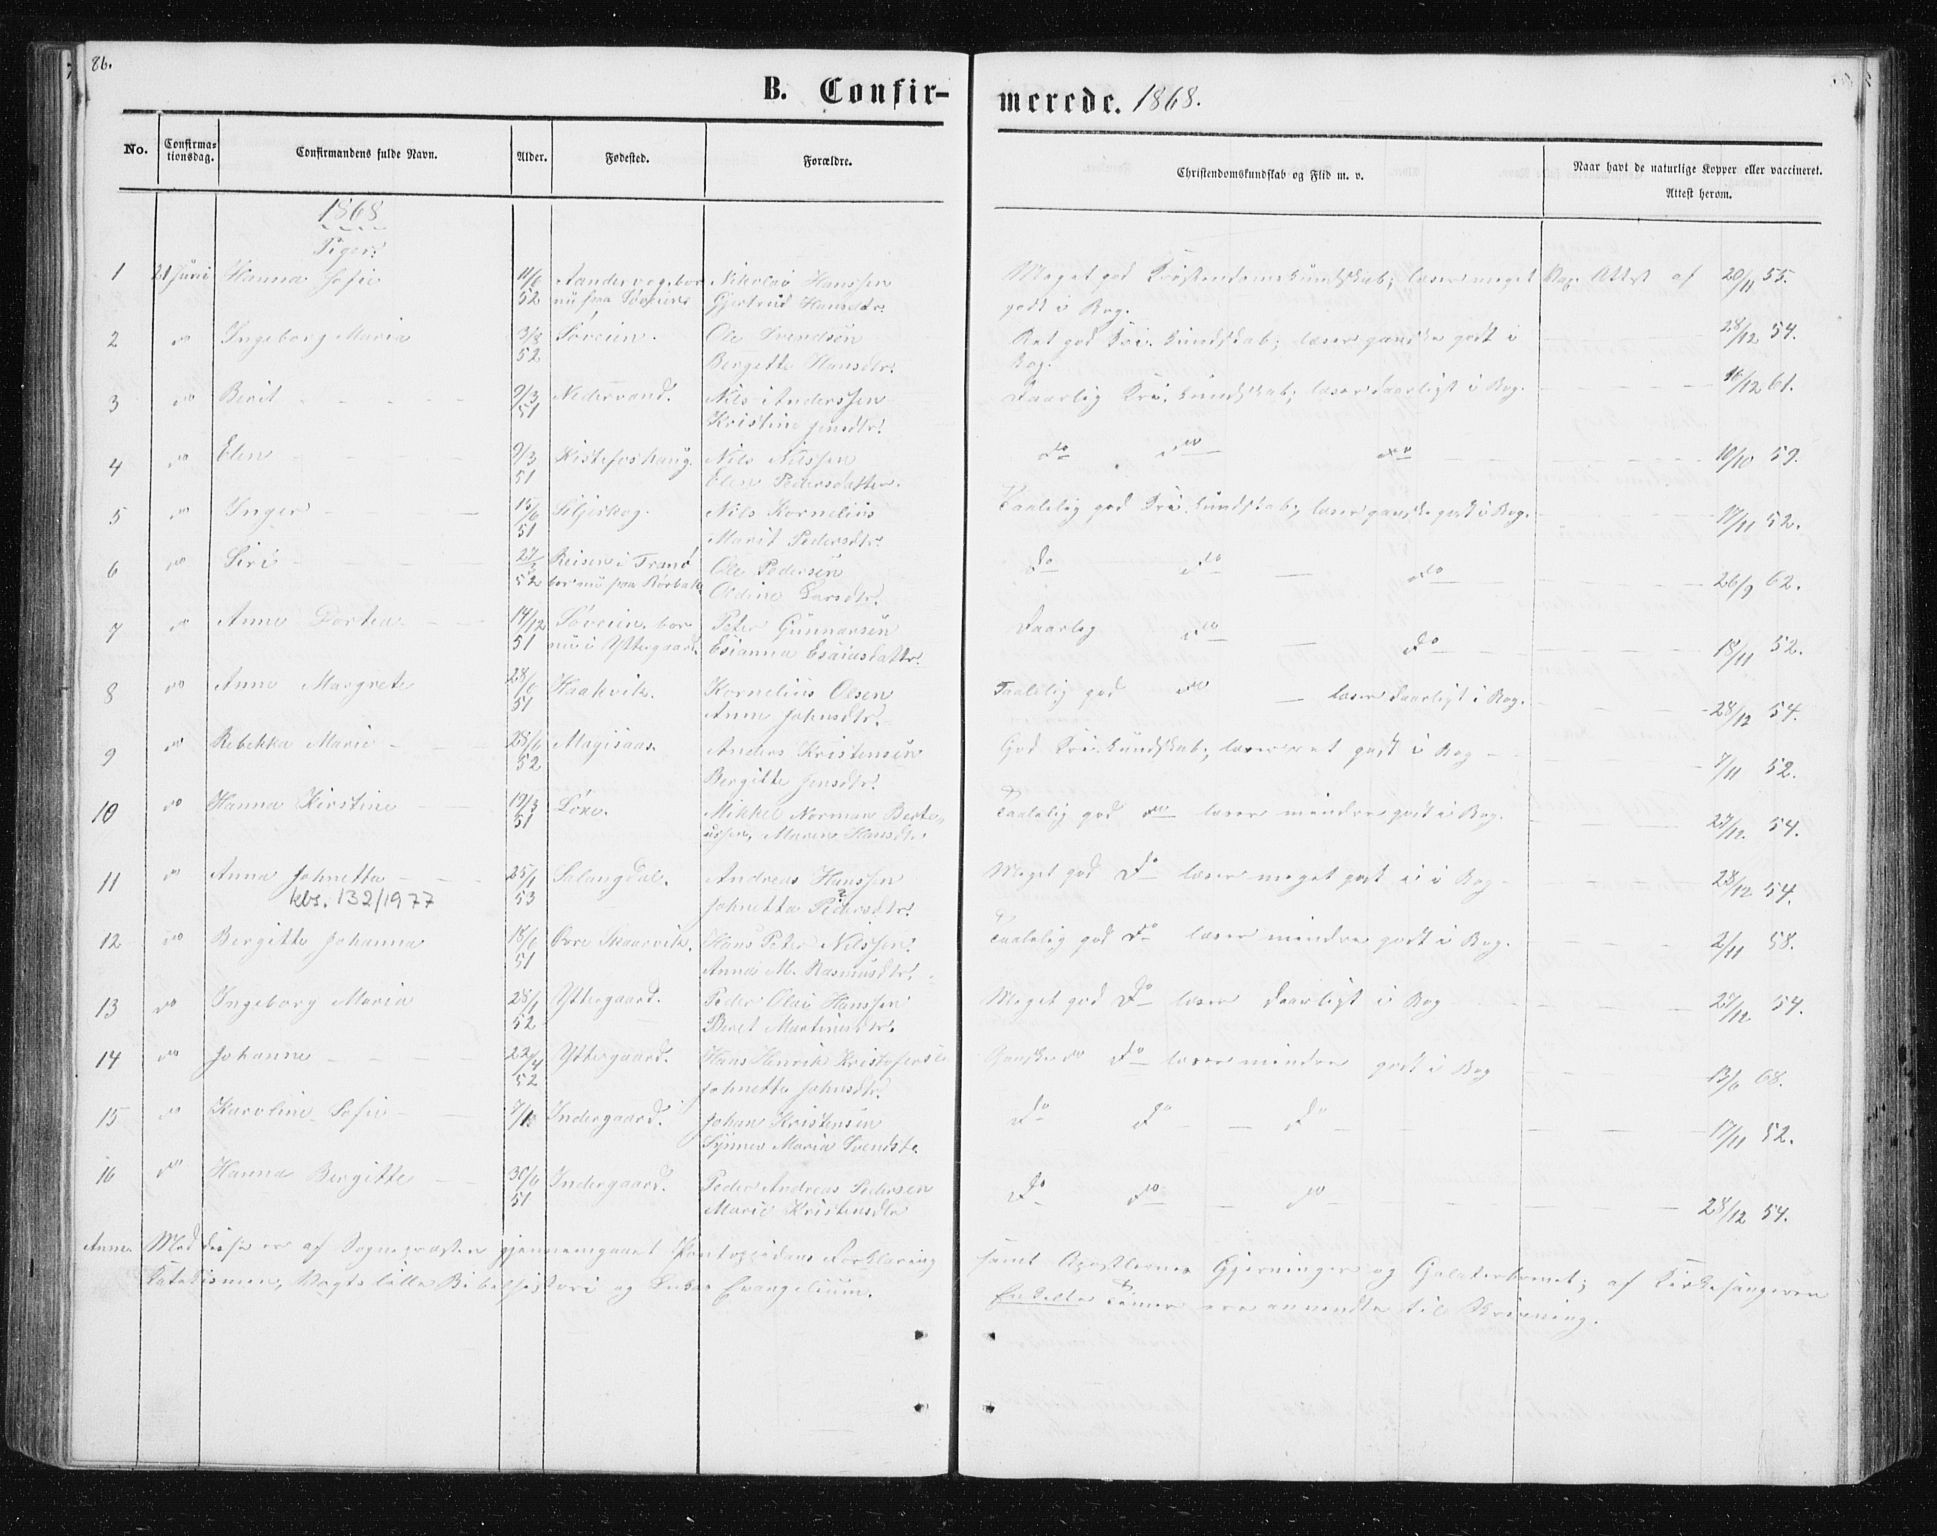 86.
B. Confir-
merede. 1868.
No.
Confirma-
tionsdag.
Confirmandens fulde Navn.
Alder.
Fødested.
Forældre.
Christendomskundskab og Flid m. v.
Naar havt de naturlige Kopper eller vaccineret.
Attest herom.
1868
Piger:
1 21 Juni Hanna Sofie 52 Nikolai Hanssen Meget god Kristendomskundskab; læser meget Vac. Attest af 20/11 55.
nu paa Søveien Gjertrud Hansdtr. godt i Bog.
2 do Ingeborg Maria 3/8 52 Søveien. Ole Svendsen Ret god Kri. kundskab; læser ganske godt i 28/12 54.
Bergitte Hansdtr. Bog.
3 do Berit 9/3 51 Nedervand. Nils Anderssen Daarlig Kri. kundskab; læser daarligt i Bog. 16/12 61.
Kristine Jensdtr.
4 do Elen 9/3 51 Kistefoshaug. Nils Nilssen do do do 10/10 59.
Elen Pedersdatter.
5 do Inger 15/6 51 Nils Kornelius Taalelig god Kri. kundskab; læser ganske godt i Bog. 17/11 52.
Marit Pedersdtr.
6 do Siri 52 Reisen i Tranø Ole Pedersen Do do do 26/9 62.
bor nu paa Rørbak. Oldine Larsdtr.
7 do Anne Dortea 14/12 51 Søveien. bor Peter Gunnarsen Daarlig do Do 18/11 52.
nu i Yttergaard. Esianna Esaiasdattr.
8 do Anne Margrete 28/6 51 Haakvik. Kornelius Olsen Taalelig god do læser daarligt i Bog. 28/12 54.
Anne Johnsdtr.
9 do Rebekka Marie 28/6 52 Magisaas. Anders Kristensen God Kri. kundskab; læser ret godt i Bog 7/11 52.
Bergitte Jensdtr.
10 do Hanna Kirstine 19/3 51 Løxe. Mikkel Norman Berte- Taalelig god do læser mindre godt i Bog. 27/12 54.
ussen, Maren Hansdtr.
11 do Anna Johnetta 25/1 53 Salangdal. Andreas Hanssen Meget god Do læser meget godt i Bog 28/12 54.
kbr. 132/1977 Johnetta Pedersdtr.
12 do Bergitte Johanna 18/6 51 Øvre Skaarvik. Hans Peter Nilssen. Taalelig god Do læser mindre godt i Bog. 2/11 58.
Anna M. Rasmusdtr.
13 do Ingeborg Maria 28/1 52 Yttergaard. Peder Olai Hanssen Meget god Do læser daarligt i Bog 27/12 54.
Beret Martinusdtr.
14 do Johanne 22/4 52 Yttergaard. Hans Henrik Kristofersen Ganske do Do læser mindre godt i Bog 13/6 68.
Johnetta Johnsdtr.
15 do Karoline Sofie Indergaard. Johan Kristensen Do Do Do 17/11 52.
Synnev Maria Svendsdtr.
16 do Hanna Bergitte 30/6 51 Indergaard. Peder Andreas Pedersen Do Do Do 28/12 54.
Marie Kristensdtr
Anm. Med disse er af Sognepræsten gjennemgaaet Pontoppidans Forklaring samt Apostlernes Gjerninger og Galaterbrevet; af Kirkesangeren
Katekismen, Vogts lille Bibelhistori og Lukas Evangelium. Enkelte Timer ere anvendte til Skrivning.